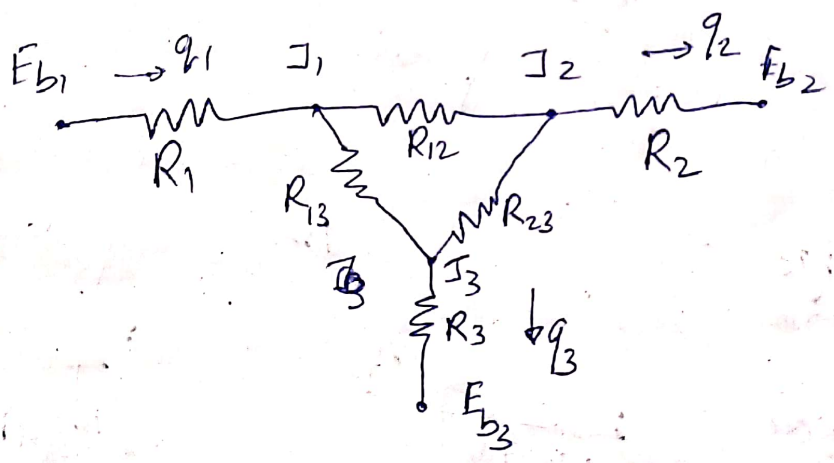 E_b1 → q_1 J_1 J_2 → q_2 E_b2
R_1 R_12 R_2
R_13 R_23
J_3
R_3 ↓ q_3
E_b3